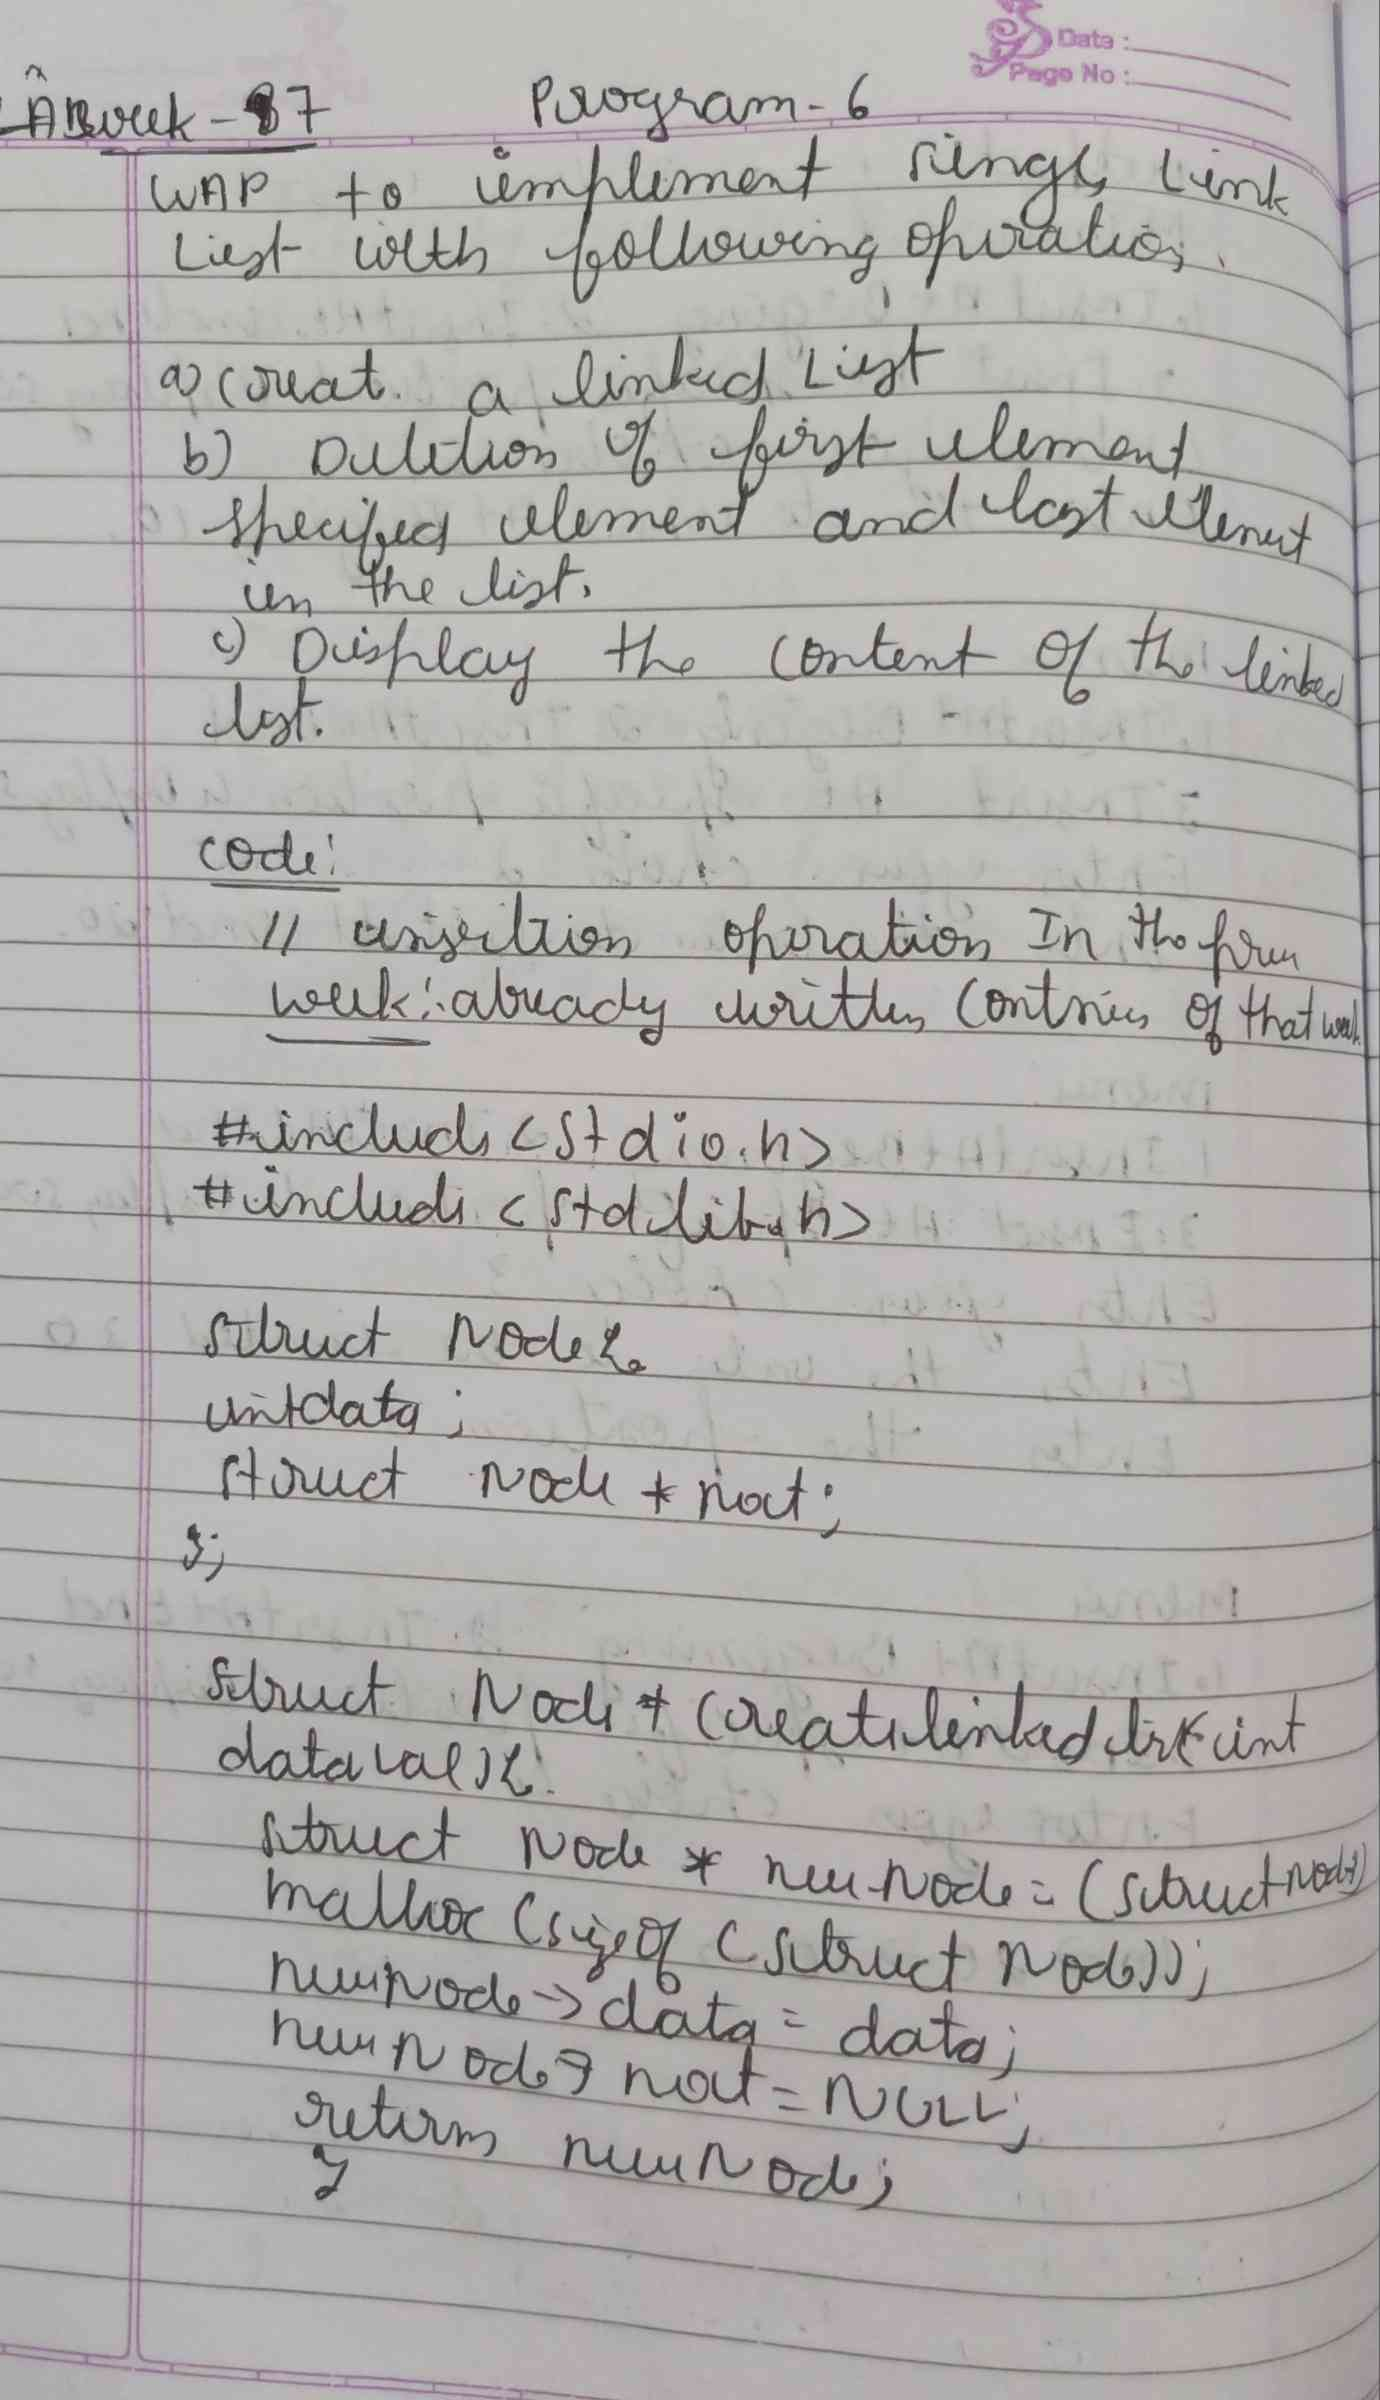 Date :
Page No :
week - 7 Program - 6
WAP to implement single Link
List with following operation.
a) Creat a linked List
b) Deletion of first element
specified element and last element
in the list.
c) Display the content of the linked
list.
code:
// insertion operation In the prev
week: already written of that week
#include <stdio.h>
#include <stdlib.h>
struct Node {
int data;
struct Node * next;
};
struct Node * Createlinkedlist(int
dataval) {
struct Node * newNode = (struct Node*)
malloc (sizeof (struct Node));
newNode -> data = data;
newNode -> next = NULL;
return newNode;
}